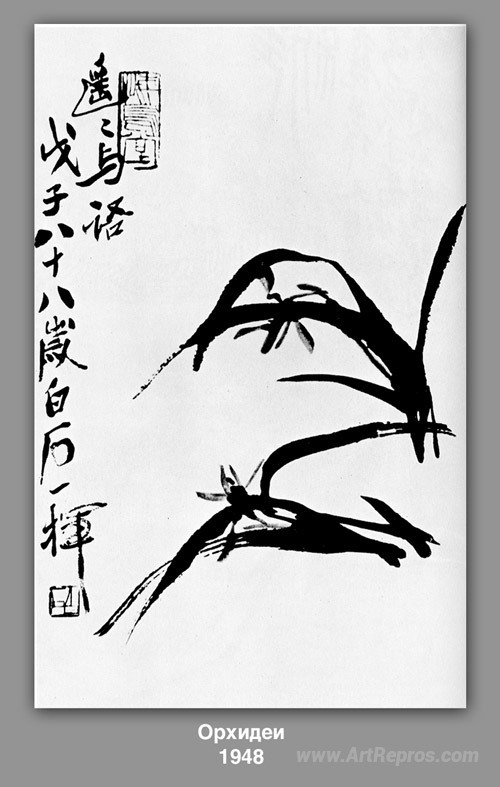 遙〻与語
戊子八十八歲白石一揮
Орхидеи
1948
www.ArtRepros.com